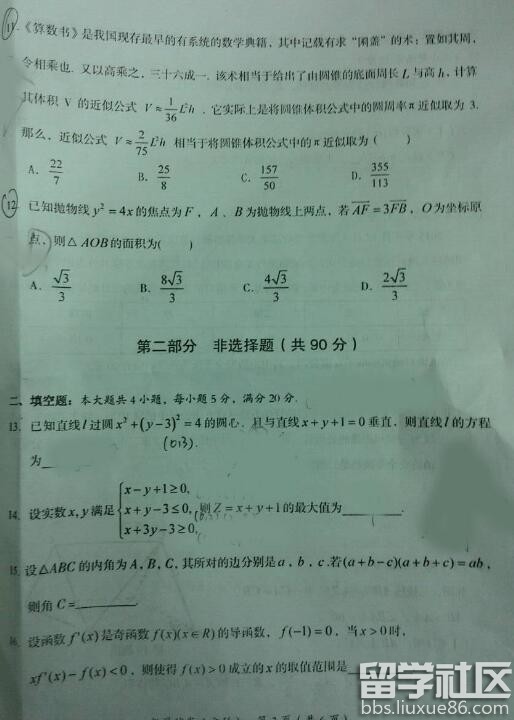 11. 《算数书》是我国现存最早的有系统的数学典籍，其中记载有求“囷盖”的术：置如其周，
令相乘也. 又以高乘之，三十六成一. 该术相当于给出了由圆锥的底面周长 L 与高 h，计算
其体积 V 的近似公式 V≈1/36 L²h. 它实际上是将圆锥体积公式中的圆周率 π 近似取为 3.
那么，近似公式 V≈2/75 L²h 相当于将圆锥体积公式中的 π 近似取为（ ）
A. 22/7 B. 25/8 C. 157/50 D. 355/113
12. 已知抛物线 y²=4x 的焦点为 F，A、B 为抛物线上两点，若 AF=3FB，O 为坐标原
点，则△AOB的面积为( )
A. √3/3 B. 8√3/3 C. 4√3/3 D. 2√3/3
第二部分 非选择题（共 90 分）
二、填空题：本大题共4小题，每小题5分，满分20分.
13. 已知直线 l 过圆 x²+(y-3)²=4 的圆心，且与直线 x+y+1=0 垂直，则直线 l 的方程
(0,3).
为
14. 设实数 x,y 满足 { x-y+1≥0, x+y-3≤0, x+3y-3≥0, 则 Z=x+y+1 的最大值为________.
15. 设△ABC 的内角为 A, B, C, 其所对的边分别是 a，b，c.若(a+b-c)(a+b+c)=ab，
则角 C=________.
16. 设函数 f'(x) 是奇函数 f(x)(x∈R) 的导函数，f(-1)=0，当 x>0 时，
xf'(x)-f(x)<0，则使得 f(x)>0 成立的 x 的取值范围是
留学社区
bbs.liuxue86.com